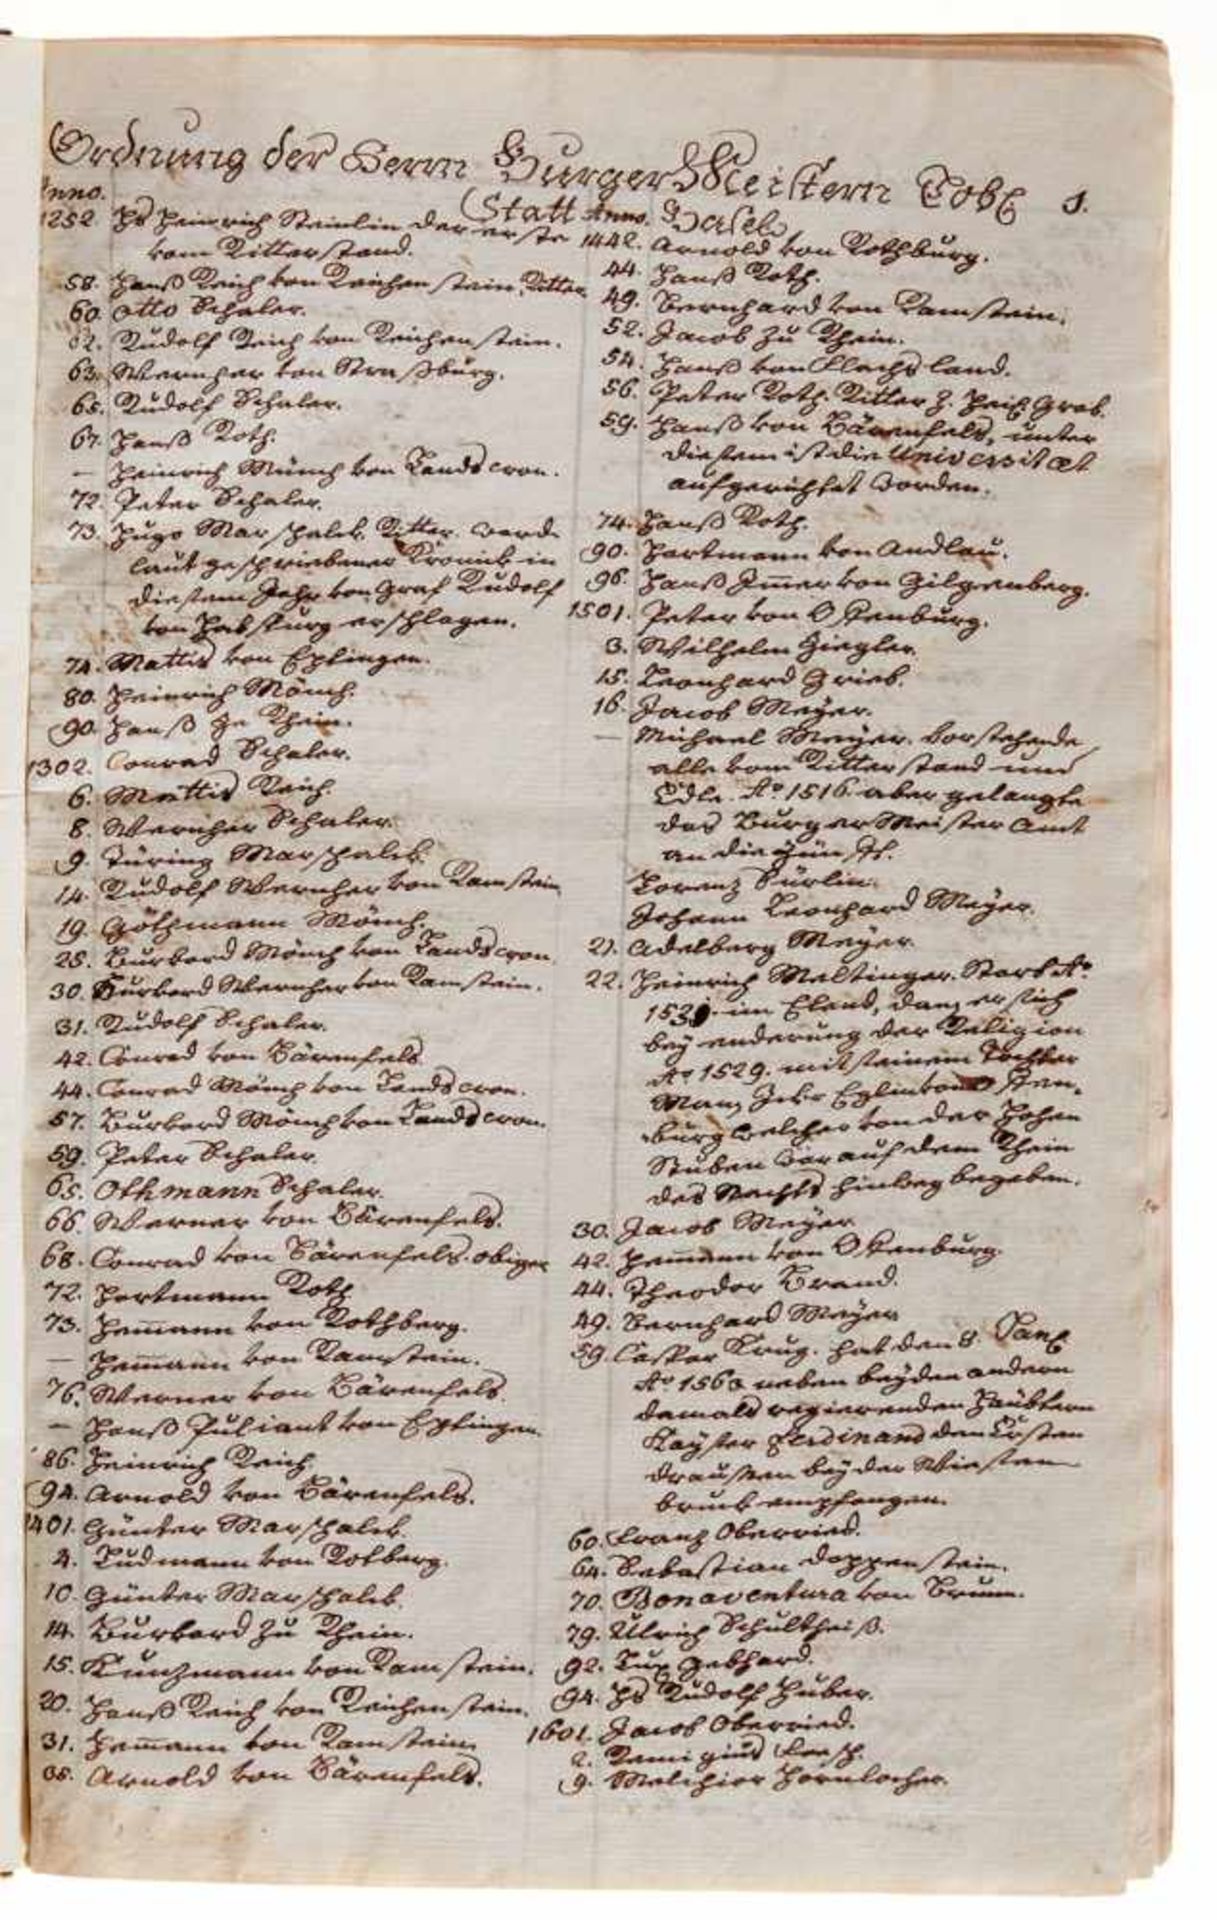 Ordnung der Herrn BurgerMeistern Lobl. 1.
Statt Basel.
Anno.
1252 Hs Heinrich Steinlin der erste
vom Ritterstand.
58. Hanß Reich von Reichenstein, Ritter.
60. Otto Schaler.
62. Rudolf Reich von Reichenstein.
63. Wernher von Straßburg.
65. Rudolf Schaler.
67. Hanß Roth.
— Heinrich Münch von Landscron.
72. Peter Schaler.
73. Hugo Marschalck. Ritter. ward
laut geschriebener Kronick in
diesem Jahr von Graf Rudolf
von Habspurg erschlagen.
74. Mattis von Eptingen.
80. Heinrich Mönch.
90. Hanß Ze Rhein.
1302. Conrad Schaler.
6. Mattis Reich.
8. Wernher Schaler.
9. Türing Marschalck.
14. Rudolf Wernher von Ramstein
19. Göthmann Mönch.
25. Burkard Mönch von Landscron.
30. Burkard Wernher von Ramstein.
31. Rudolf Schaler.
42. Conrad von Bärenfels
44. Conrad Mönch von Landscron.
57. Burkard Mönch von Landscron.
59. Peter Schaler.
65. Othmann Schaler.
66. Werner von Bärenfels.
68. Conrad von Bärenfels. obiger
72. Hartmann Roth
73. Hemann von Rothberg.
— Hemann von Ramstein.
76. Werner von Bärenfels.
— Hanß Puliant von Eptingen.
86. Heinrich Reich.
94. Arnold von Bärenfels.
1401. Günter Marschalck.
4. Ludmann von Rotberg.
10. Günter Marschalck.
14. Burkard zu Rhein.
15. Kunzmann von Ramstein.
20. Hanß Reich von Reichenstein.
31. Hemann von Ramstein
35. Arnold von Bärenfels.
Anno.
1442. Arnold von Rothburg.
44. Hanß Roth.
49. Bernhard von Ramstein.
52. Jacob zu Rhein.
54. Hanß von Flachsland.
56. Peter Roth. Ritter z. Heil. Grab.
59. Hanß von Bärenfels, unter
diesem ist die Universitæt
aufgerichtet worden.
74. Hanß Roth.
90. Hartmann von Andlau.
96. Hanß Imer von Gilgenberg.
1501. Peter von Offenburg.
3. Wilhelm Ziegler.
15. Leonhard Grieb.
16. Jacob Meyer.
— Michael Meyer. Vorstehende
alle vom Ritterstand und
Edle. Ao. 1516 aber gelangte
das BurgerMeister Amt
an die Zünfft.
Lorenz Sürlin.
Johann Leonhard Meyer.
21. Adelberg Meyer.
22. Heinrich Meltinger. Starb Ao.
im Elend, dann er sich
bey enderung der Religion
Ao 1529. mit seinem Tochter
Mann Jckr Eglin von Offen-
burg welcher von der Hohen
Stuben war auf dem Rhein
des Nachts hinweg begeben.
30. Jacob Meyer
42. Hemann von Offenburg.
44. Theodor Brand.
49. Bernhard Meyer
59. Caspar Krug. hat den 8. Jan.
Ao 1563 neben beyden andern
damals regierenden Häubtern
Kayser Ferdinand den Ersten
draussen bey der Wiesen
bruck empfangen.
60. Franz Oberried.
64. Sebastian Doppenstein.
70. Bonaventura von Brunn.
79. Ulrich Schultheiß.
92. Lux Gebhard.
94. Hs Rudolf Huber.
1601. Jacob Oberried.
2. Remigius Fæsch.
9. Melchior Hornlocher.